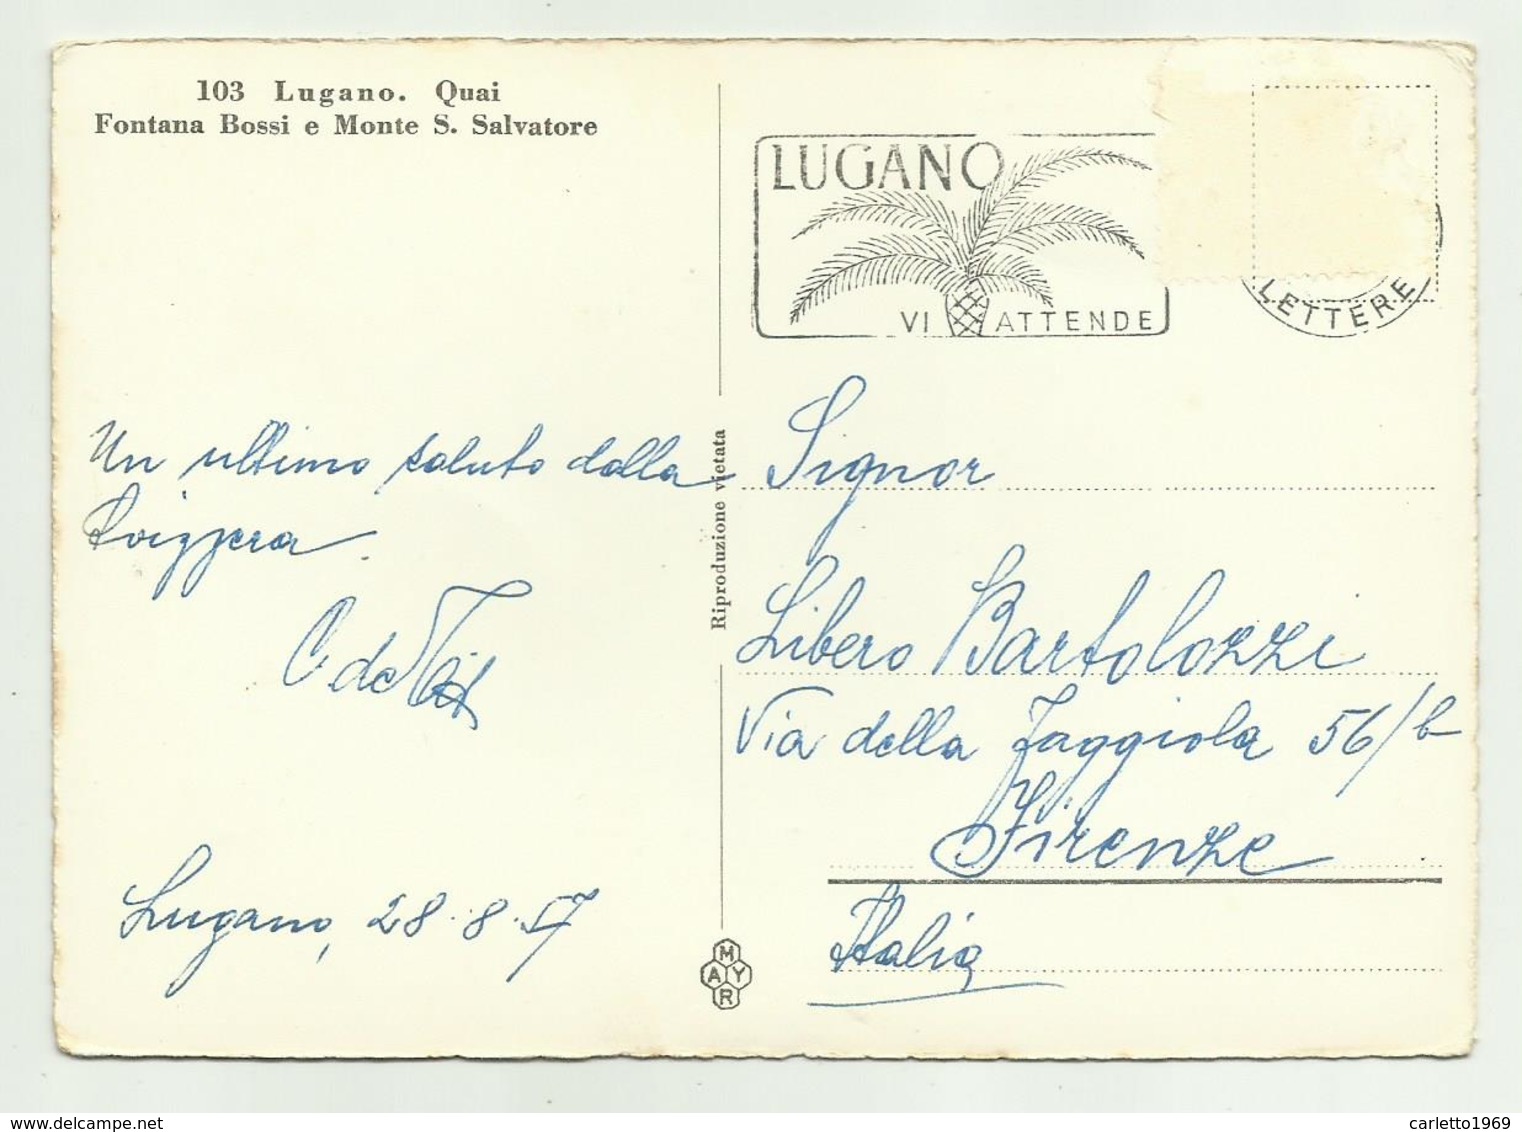 103 Lugano. Quai
Fontana Bossi e Monte S. Salvatore
LUGANO
VI ATTENDE
LETTERE
Un ultimo saluto dalla
Svizzera.
Lugano, 28.8.57
Riproduzione vietata
Signor
Libero Bartolozzi
Via della Faggiola 56/b
Firenze
Italia
MAYR
carletto1969